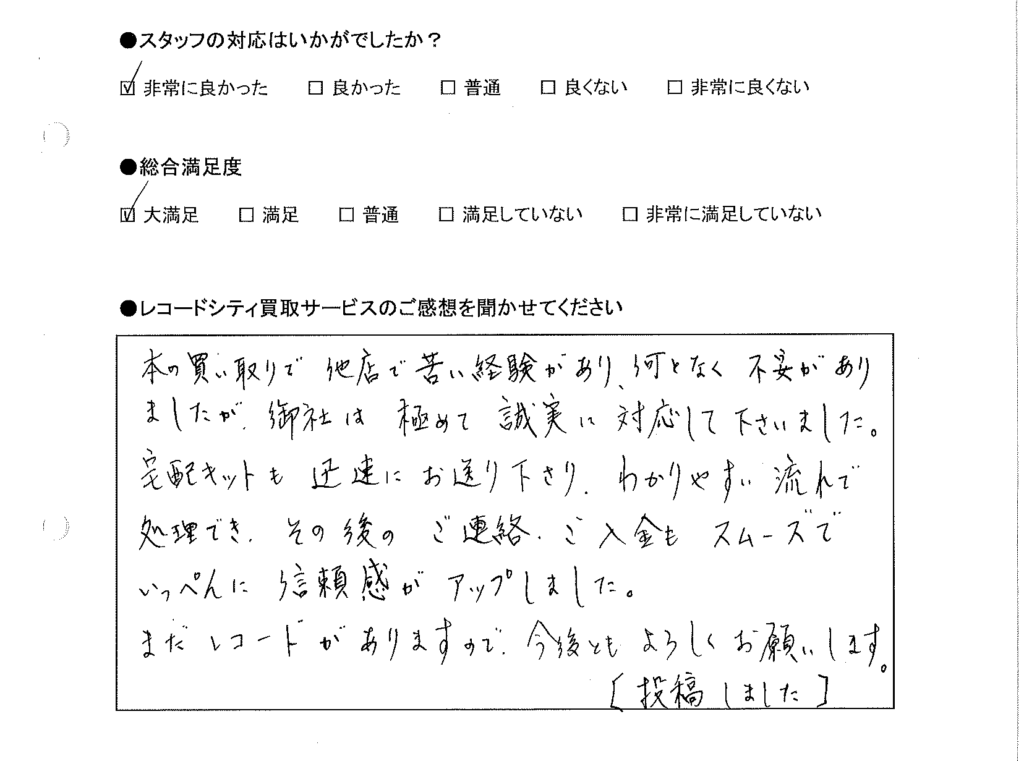 ●スタッフの対応はいかがでしたか？
☑ 非常に良かった　☐ 良かった　☐ 普通　☐ 良くない　☐ 非常に良くない
●総合満足度
☑ 大満足　☐ 満足　☐ 普通　☐ 満足していない　☐ 非常に満足していない
●レコードシティ買取サービスのご感想を聞かせてください
本の買い取りで 他店で苦い経験があり、何となく 不安があり
ましたが、御社は 極めて 誠実に 対応して下さいました。
宅配キットも 迅速に お送り下さり、わかりやすい 流れで
処理でき、その後の ご連絡・ご入金も スムーズで
いっぺんに 信頼感が アップしました。
まだ レコードが ありますので、今後とも よろしく お願いします。
[投稿しました]